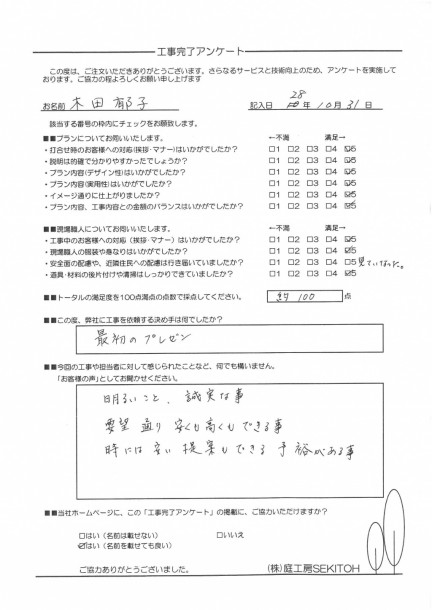 工事完了アンケート
この度は、ご注文いただきありがとうございます。さらなるサービスと技術向上のため、アンケートを実施して
おります。ご協力の程よろしくお願い申し上げます
お名前 木田 郁子 記入日 28 年 10月 31日
該当する番号の枠内にチェックをお願致します。
■■プランについてお伺いいたします。 ←不満 満足→
・打合せ時のお客様への対応(挨拶・マナー)はいかがでしたか? □1 □2 □3 □4 ☑5
・説明は的確で分かりやすかったでしょうか? □1 □2 □3 □4 ☑5
・プラン内容(デザイン性)はいかがでしたか? □1 □2 □3 □4 ☑5
・プラン内容(実用性)はいかがでしたか? □1 □2 □3 □4 ☑5
・イメージ通りに仕上がりましたか? □1 □2 □3 □4 ☑5
・プラン内容、工事内容との金額のバランスはいかがでしたか? □1 □2 □3 □4 ☑5
■■現場職人についてお伺いいたします。 ←不満 満足→
・工事中のお客様への対応(挨拶・マナー)はいかがでしたか? □1 □2 □3 □4 ☑5
・現場職人の服装や身なりはいかがでしたか? □1 □2 □3 □4 ☑5
・安全面の配慮や、近隣住民への配慮は行き届いていましたか? □1 □2 □3 □4 □5 見ていなかった。
・道具・材料の後片付けや清掃はしっかりできていましたか? □1 □2 □3 □4 ☑5
■■トータルの満足度を100点満点の点数で採点してください。 約 100 点
■■この度、弊社に工事を依頼する決め手は何でしたか?
最初の プレゼン
■■今回の工事や担当者に対して感じられたことなど、何でも構いません。
「お客様の声」としてお聞かせください。
明るいこと、誠実な事
要望 通り 安くも高くもできる事
時には 安い 提案もできる 余裕がある事
■■当社ホームページに、この「工事完了アンケート」の掲載に、ご協力いただけますか?
□はい(名前は載せない) □いいえ
☑はい(名前を載せても良い)
ご協力ありがとうございました。 (株)庭工房SEKITOH